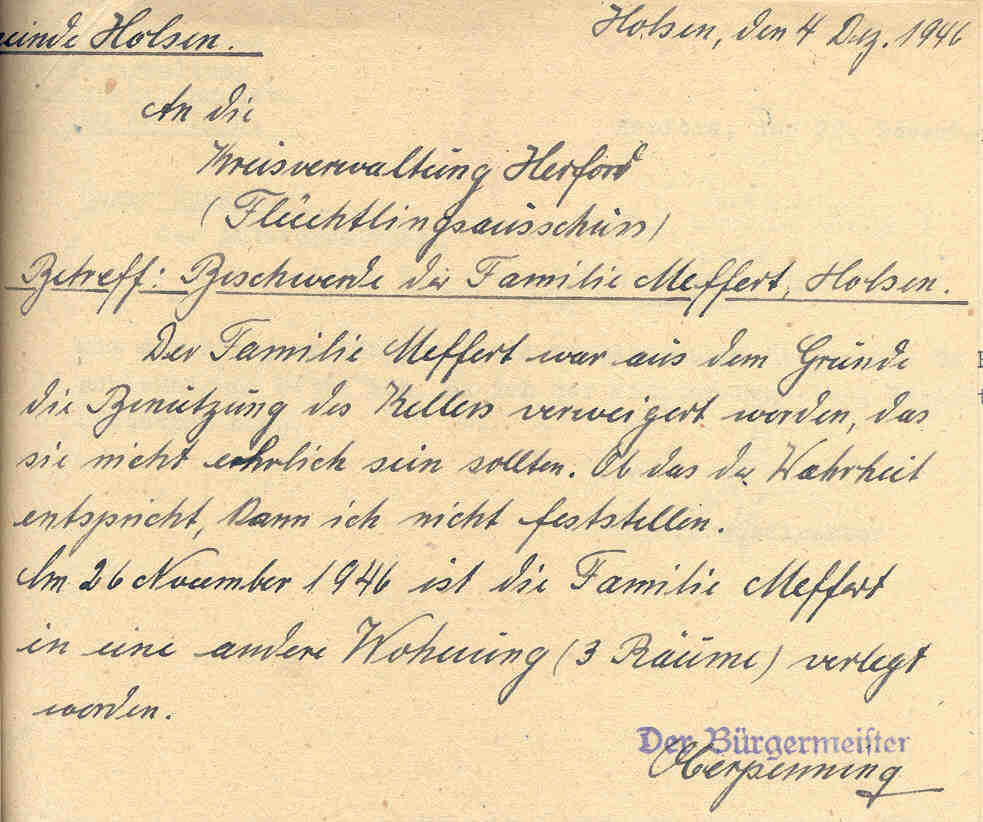 einde Holsen.
Holsen, den 4 Dez. 1946
An die
Kreisverwaltung Herford
(Flüchtlingsausschuss)
Betreff: Beschwerde der Familie Meffert, Holsen.
Der Familie Meffert war aus dem Grunde
die Benutzung des Kellers verweigert worden, das
sie nicht ehrlich sein sollten. Ob das der Wahrheit
entspricht, kann ich nicht feststellen.
Am 26 November 1946 ist die Familie Meffert
in eine andere Wohnung (3 Räume) verlegt
worden.
Der Bürgermeister
Oberpenning